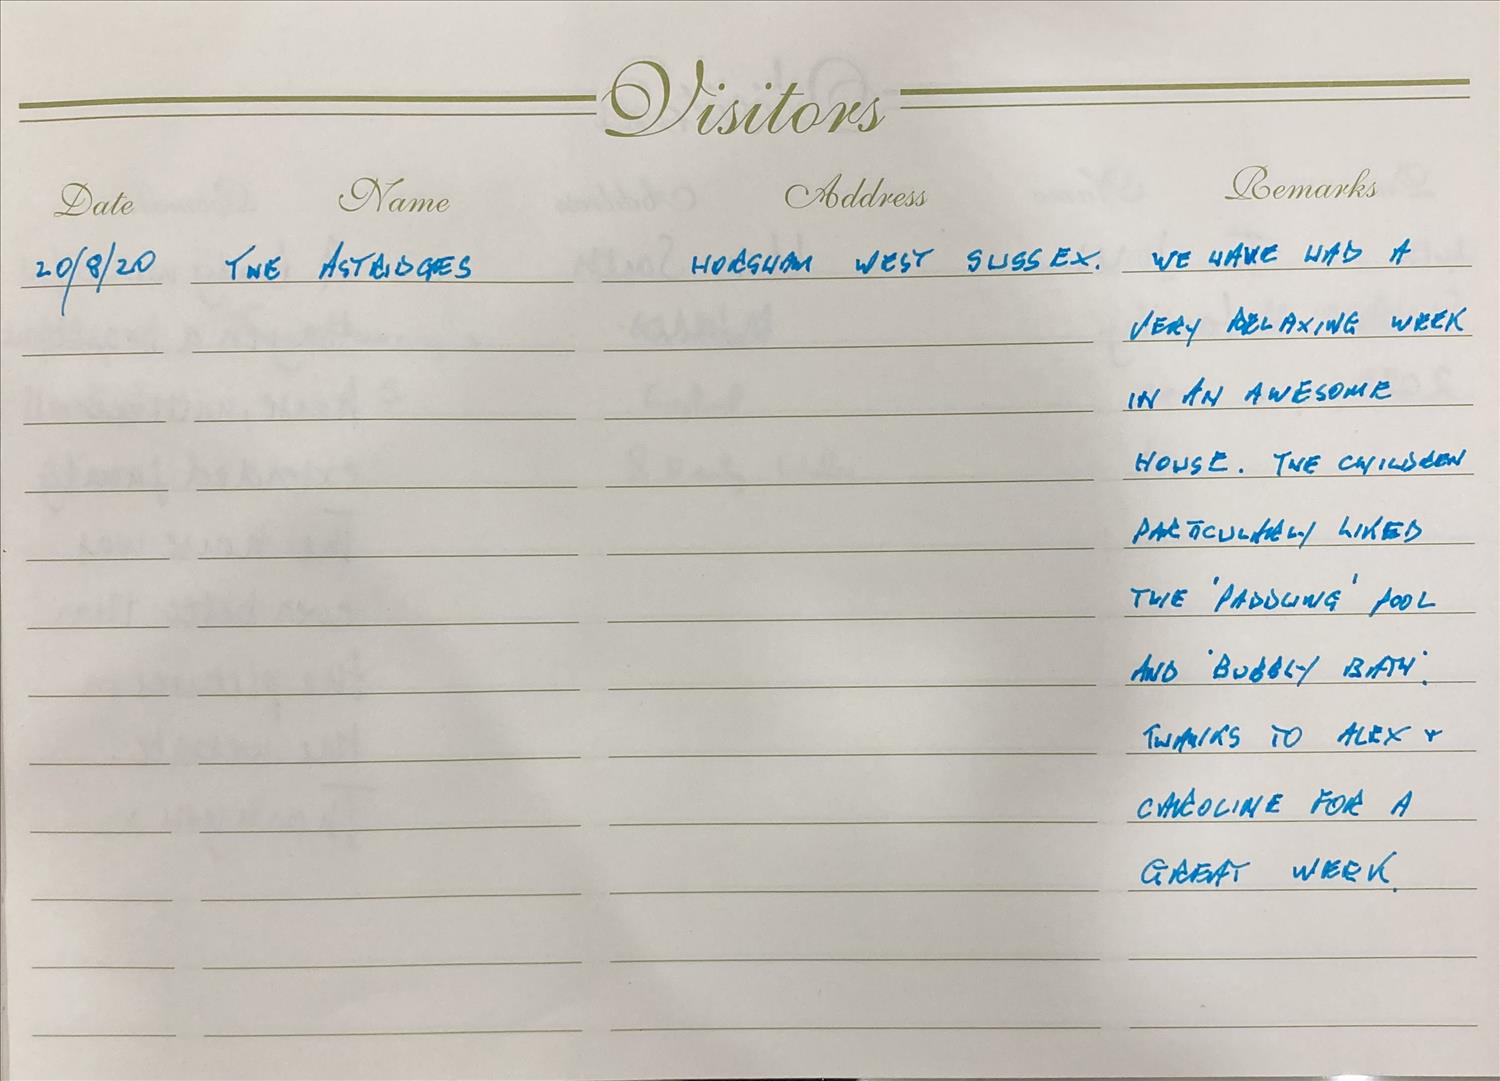 Visitors
Date Name Address Remarks
20/8/20 THE ASTRIDGES HORSHAM WEST SUSSEX. WE HAVE HAD A
VERY RELAXING WEEK
IN AN AWESOME
HOUSE. THE CHILDREN
PARTICULARLY LIKED
THE 'PADDLING' POOL
AND 'BUBBLY BATH'.
THANKS TO ALEX +
CAROLINE FOR A
GREAT WEEK.